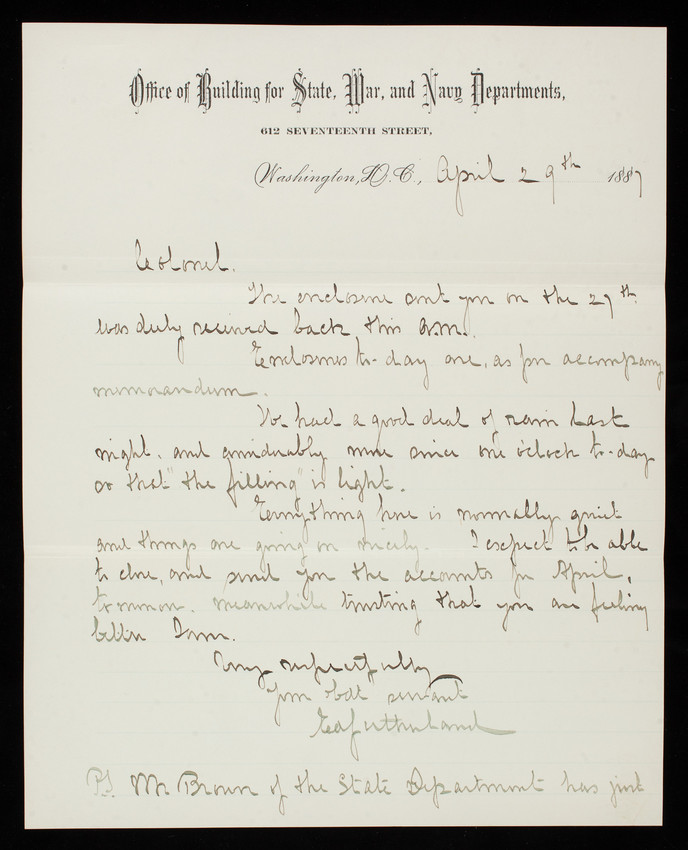 Office of Building for State, War, and Navy Departments,
612 SEVENTEENTH STREET,
Washington, D.C., April 29th 1887
Colonel.
The enclosure sent you on the 27th
was duly received back this a.m.
Enclosures to-day are, as per accompany
memorandum.
We had a good deal of rain last
night, and considerably more since one o'clock to-day
so that "the filling" is light.
Everything here is normally quiet
and things are going on nicely. I expect to be able
to close, and send you the accounts for April,
to-morrow. Meanwhile trusting that you are feeling
better I am.
Very respectfully
Your obdt servant
PS Mr Brown of the State Department has just